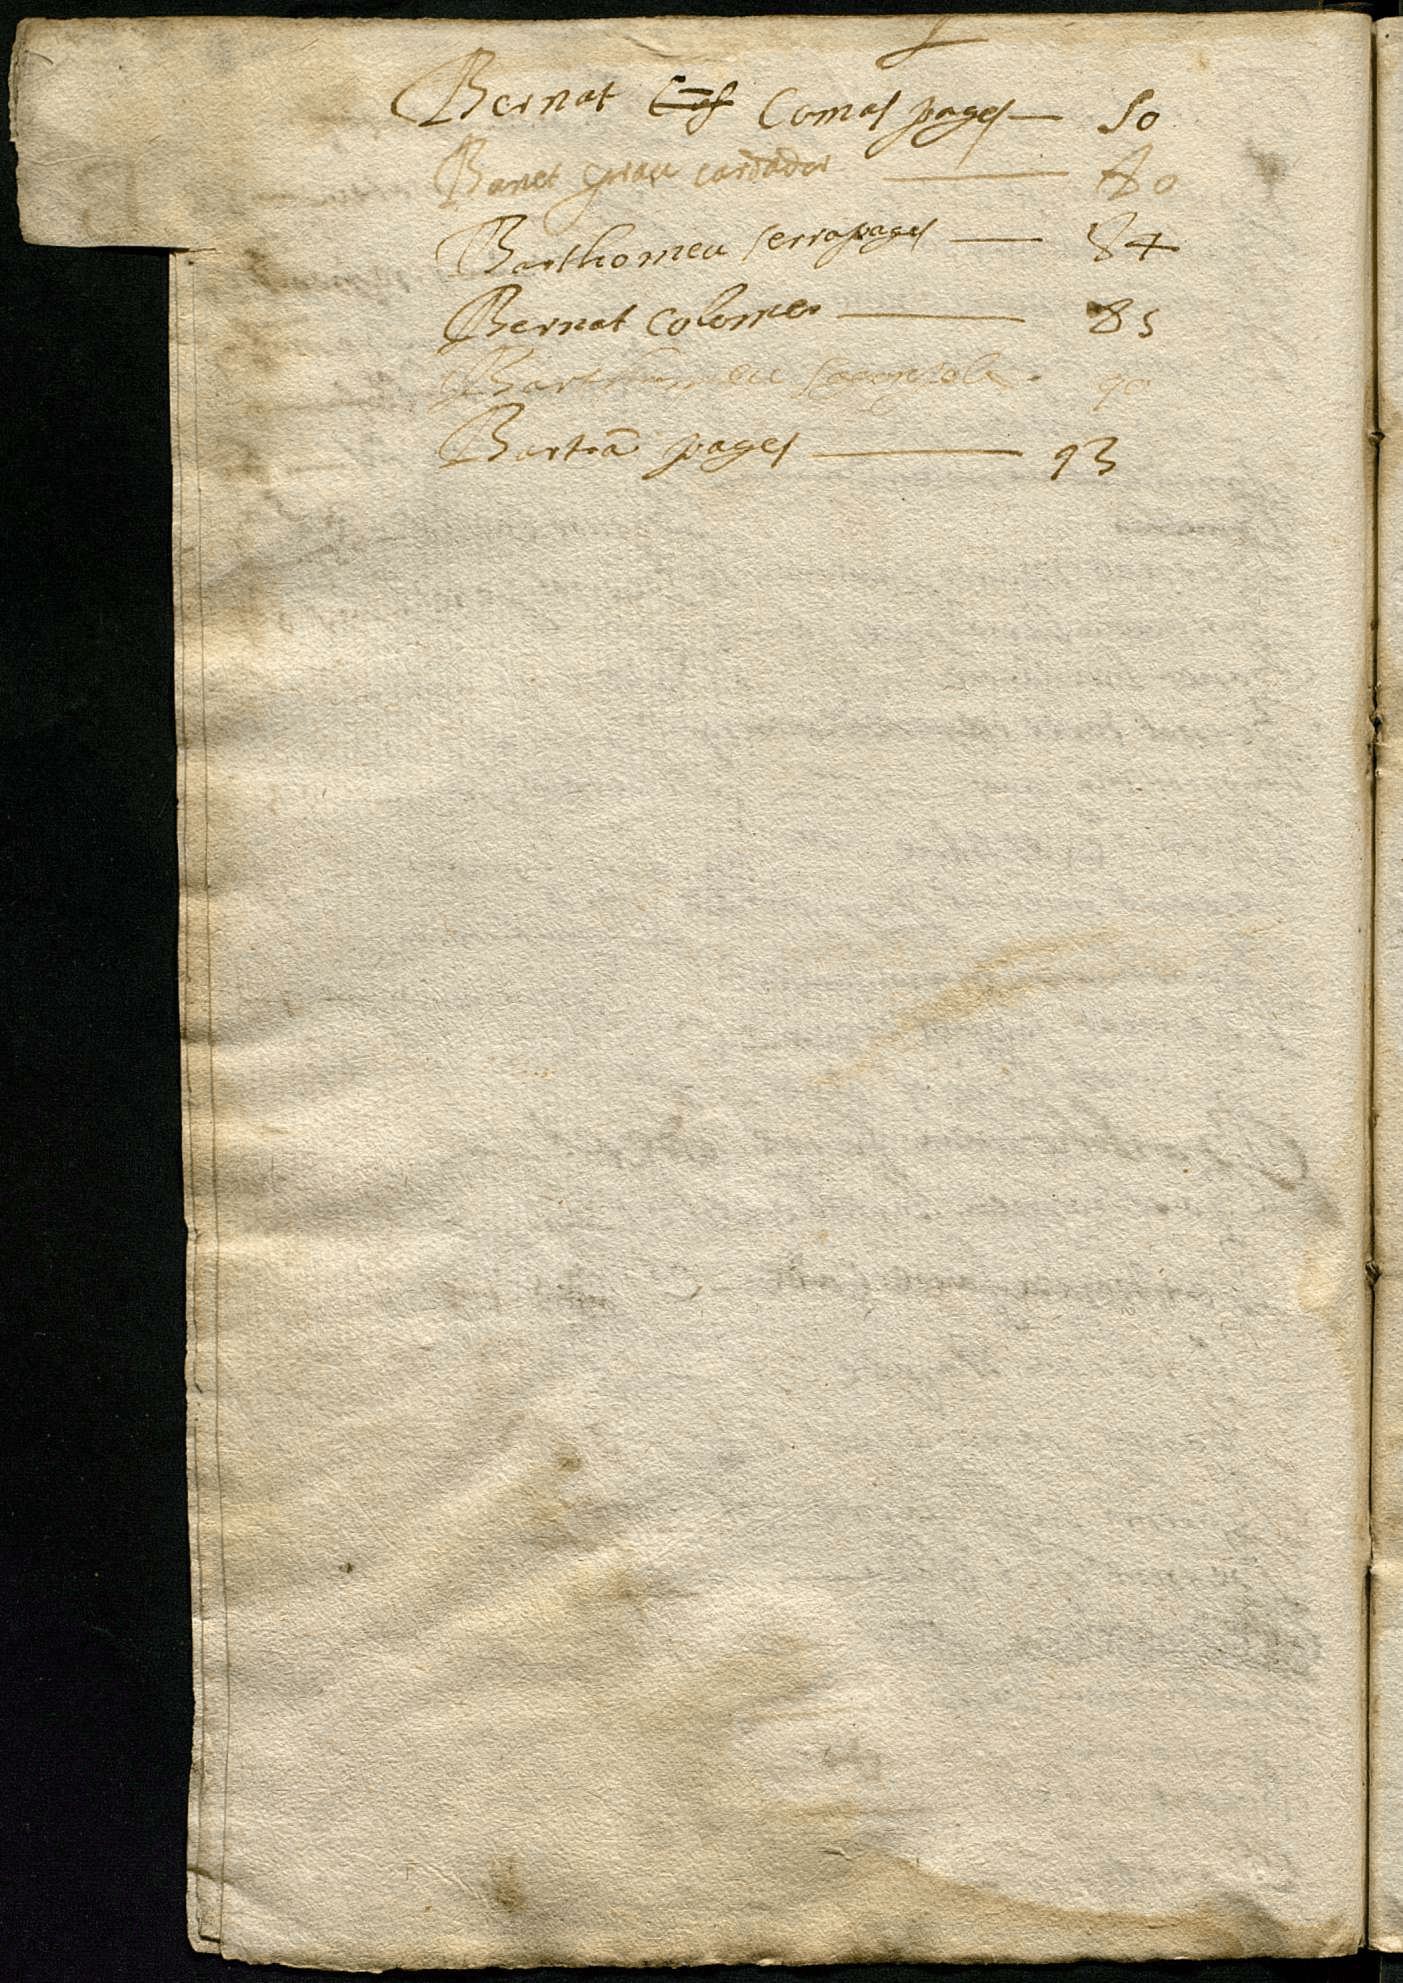 Bernat Comas pages — 50
Banet grau cardador — 80
Barthomeu serra pages — 84
Bernat colomer — 85
Barthomeu 90
Bertrā pages — 93